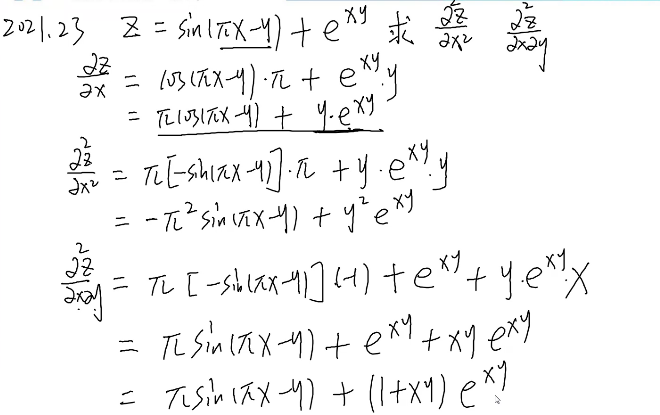 2021.23 Z = sin(πx-y) + e^{xy} 求 ∂²z/∂x² ∂²z/∂x∂y
∂z/∂x = cos(πx-y)·π + e^{xy}·y
= πcos(πx-y) + y·e^{xy}
∂²z/∂x² = π[-sin(πx-y)]·π + y·e^{xy}·y
= -π²sin(πx-y) + y²e^{xy}
∂²z/∂x∂y = π[-sin(πx-y)](-1) + e^{xy} + y·e^{xy}·x
= πsin(πx-y) + e^{xy} + xye^{xy}
= πsin(πx-y) + (1+xy)e^{xy}